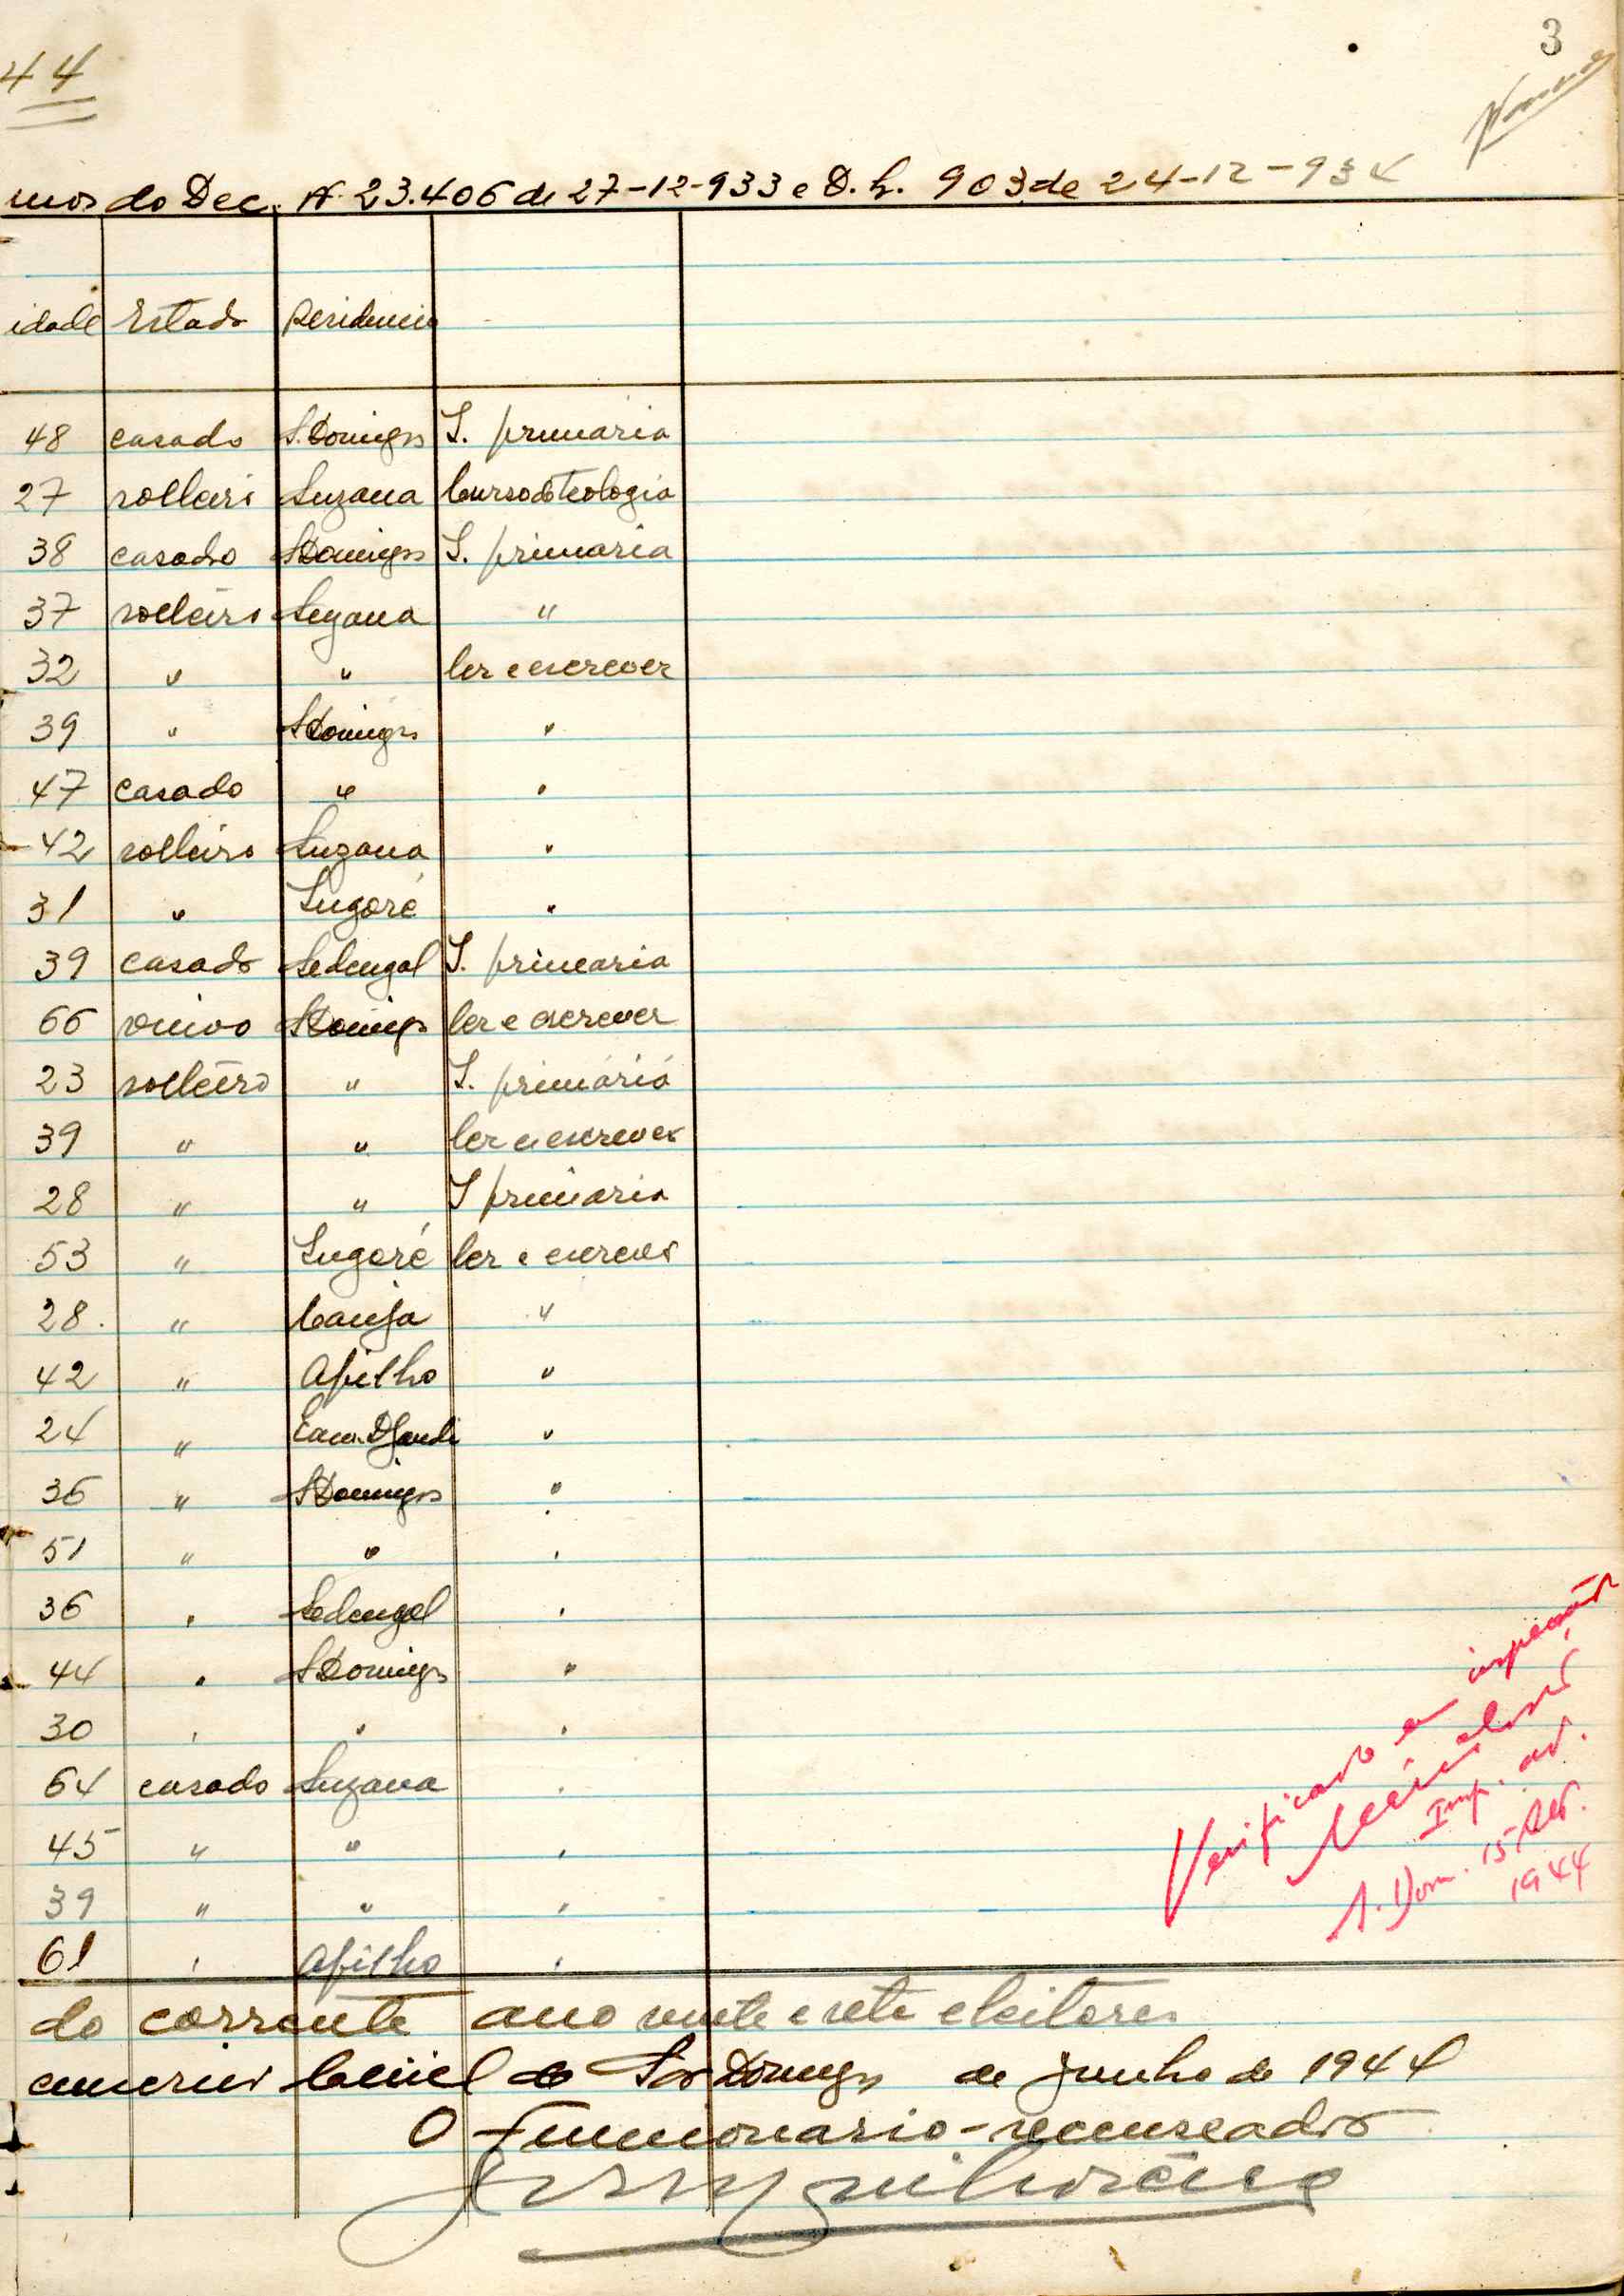 3
44
mos do Dec. Nº 23.406 de 27-12-933 e D. L. 903 de 24-12-934
idade Estado Residencia
48 casado S. Domingos I. primária
27 solteiro Suzana Curso de teologia
38 casado S. Domingos I. primaria
37 solteiro Suzana "
32 " " ler e escrever
39 " S. Domingos "
47 casado " "
42 solteiro Suzana "
31 " Ingoré "
39 casado Sedengal I. primaria
66 viuvo S. Domingos ler e escrever
23 solteiro " I. primária
39 " " ler e escrever
28 " " I primária
53 " Ingoré ler e escrever
28. " Canja "
42 " Apilho "
24 " "
36 " S. Domingos "
51 " " "
36 " Sedengal "
44 " S. Domingos "
30 " " "
64 casado Suzana "
45 " " "
39 " " "
61 " Apilho "
do corrente ano vinte e sete eleitores
de São Domingos de junho de 1944
O Funcionario-recenseador
Verificado em inspecção
Insp. ad.
S. Dom. 15 Set.
1944